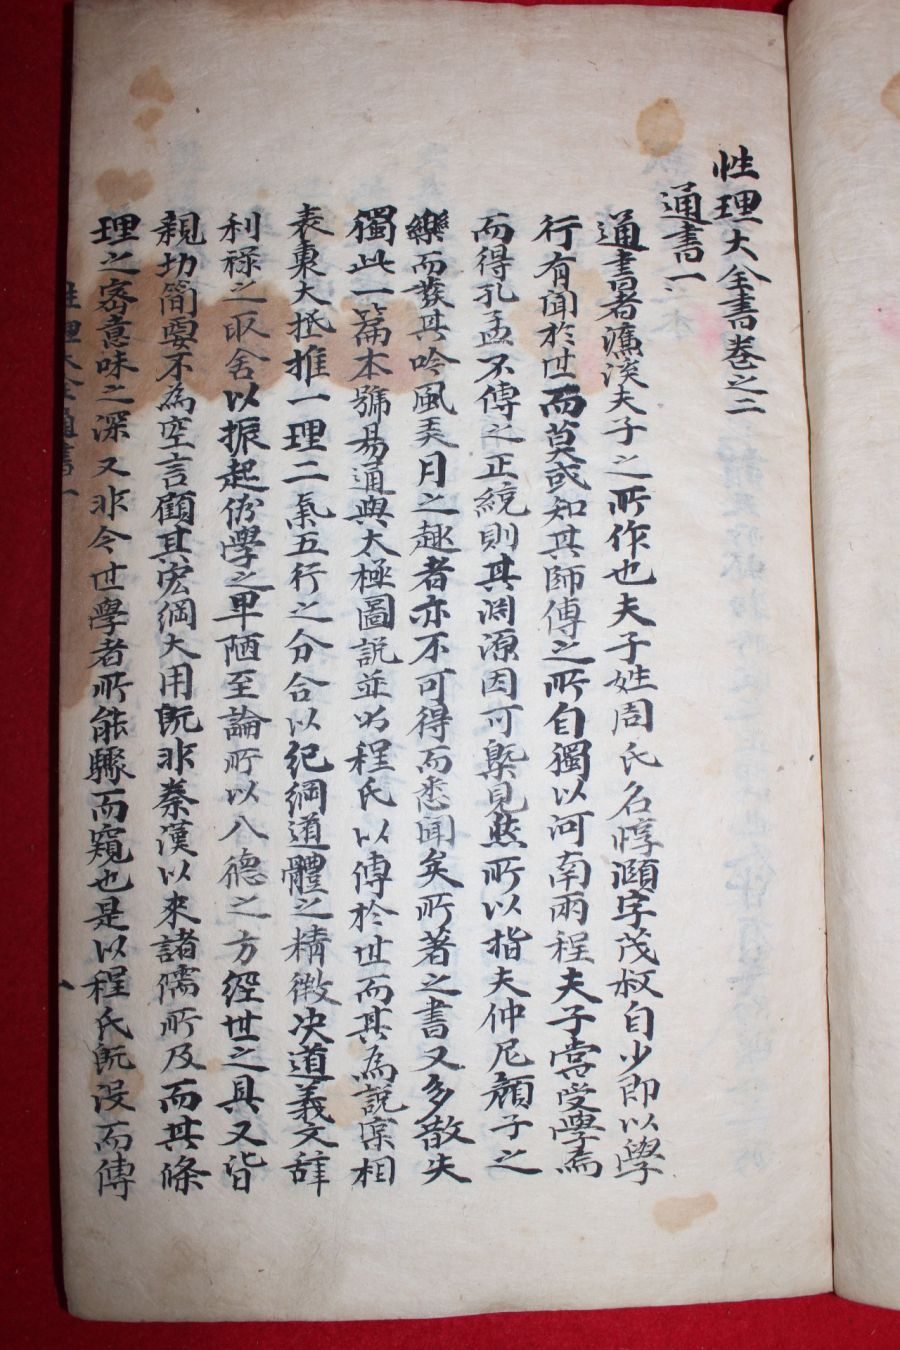 性理大全書卷之二
通書一
通書者濂溪夫子之所作也夫子姓周氏名惇頤字茂叔自少即以學
行有聞於世而莫或知其師傳之所自獨以河南兩程夫子嘗受學焉
而得孔孟不傳之正統則其淵源因可槩見然所以指夫仲尼顏子之
樂而發其吟風弄月之趣者亦不可得而悉聞矣所著之書又多散失
獨此一篇本號易通與太極圖說並出程氏以傳於世而其為說案相
表裏大抵推一理二氣五行之分合以紀綱道體之精微决道義文辞
利祿之取舍以振起俗學之卑陋至論所以入德之方經世之具又皆
親切簡要不為空言顧其宏綱大用既非秦漢以來諸儒所及而其條
理之密意味之深又非今世學者所能驟而窺也是以程氏既没而傳
性理大全通書一